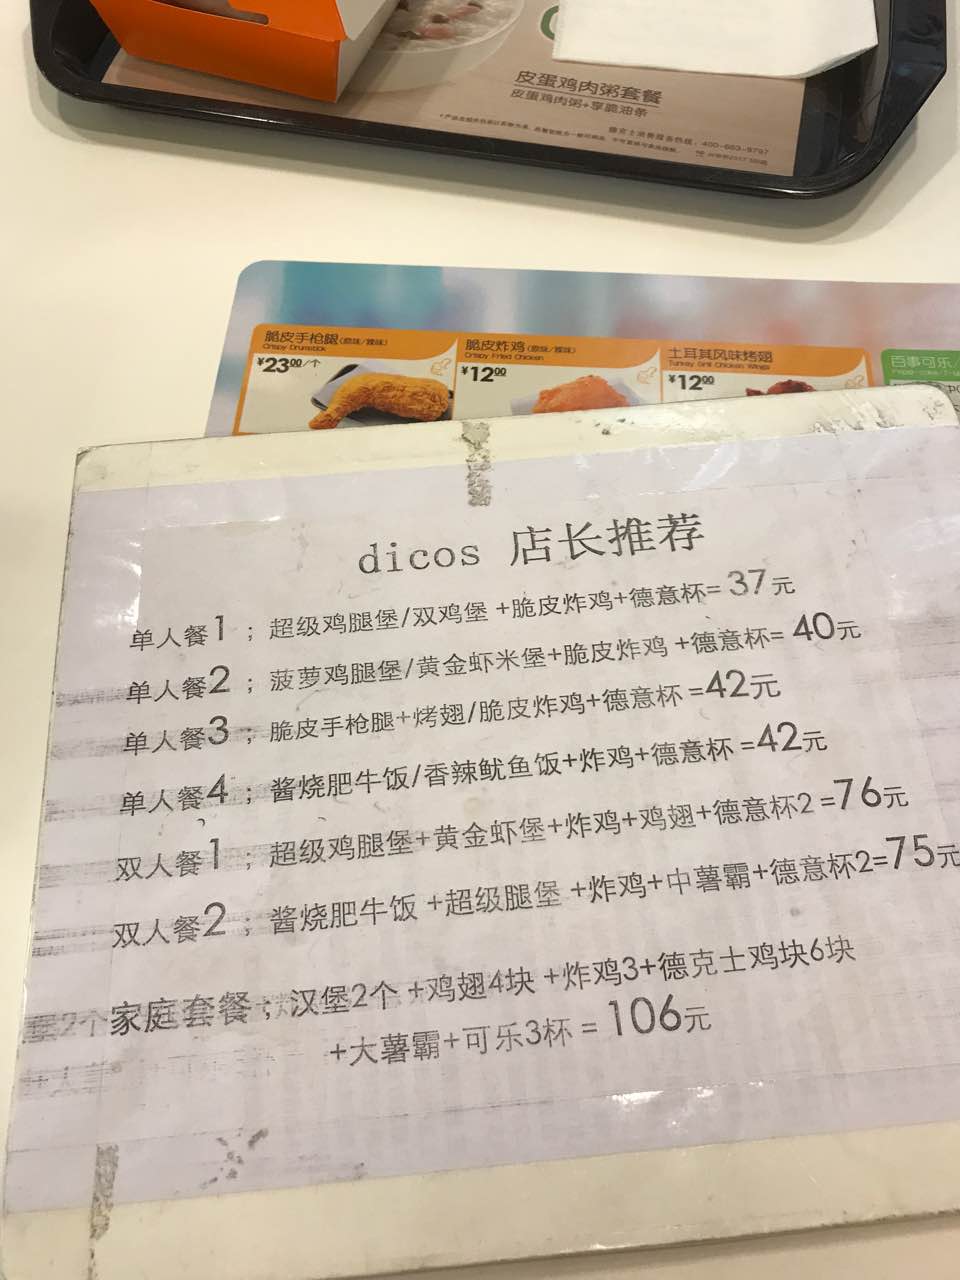 皮蛋鸡肉粥套餐
皮蛋鸡肉粥+享脆油条
德克士消费服务热线：400-663-9797
脆皮手枪腿(原味/辣味)
Crispy Drumstick
¥23.00/个
脆皮炸鸡(原味/辣味)
Crispy Fried Chicken
¥12.00
土耳其风味烤翅
Turkey Grill Chicken Wings
¥12.00
百事可乐/
dicos 店长推荐
单人餐1；超级鸡腿堡/双鸡堡 +脆皮炸鸡+德意杯= 37元
单人餐2；菠萝鸡腿堡/黄金虾米堡+脆皮炸鸡 +德意杯= 40元
单人餐3；脆皮手枪腿+烤翅/脆皮炸鸡+德意杯 =42元
单人餐4；酱烧肥牛饭/香辣鱿鱼饭+炸鸡+德意杯 =42元
双人餐1；超级鸡腿堡+黄金虾堡+炸鸡+鸡翅+德意杯2 =76元
双人餐2；酱烧肥牛饭 +超级腿堡 +炸鸡+中薯霸+德意杯2=75元
家庭套餐；汉堡2个 +鸡翅4块 +炸鸡3+德克士鸡块6块
+大薯霸+可乐3杯 = 106元